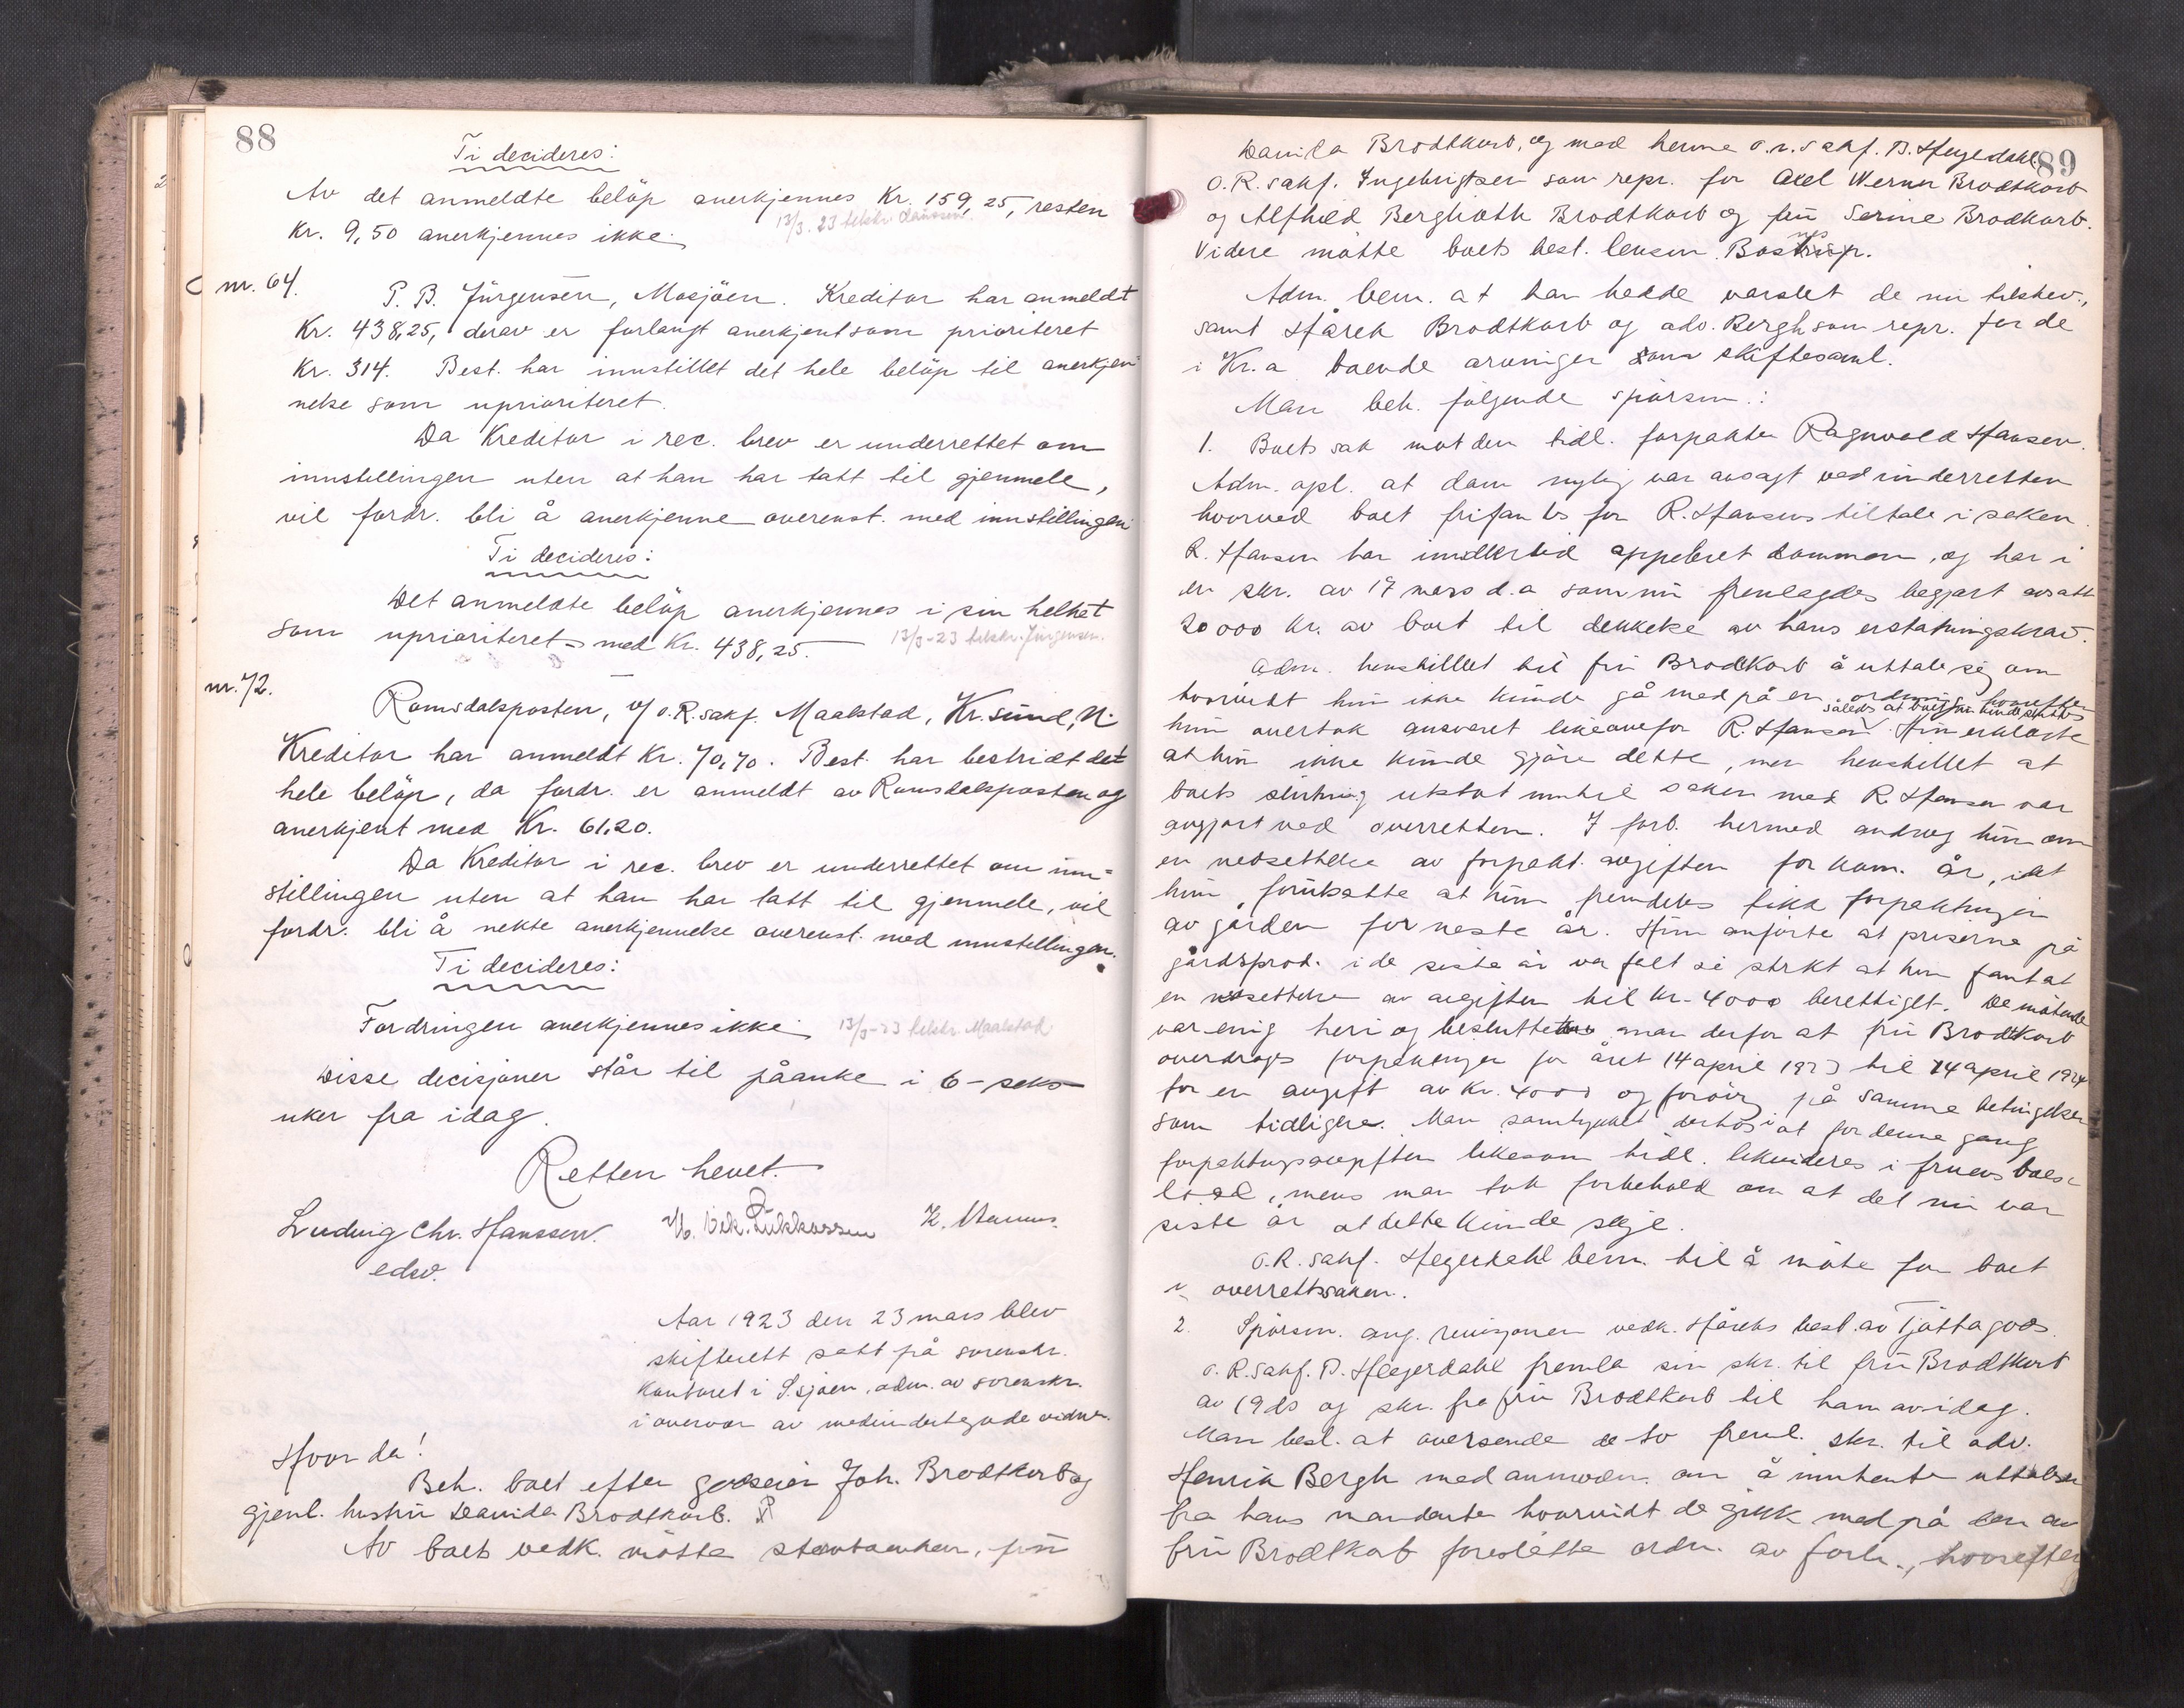 88
Ti decideres:
Av det anmeldte belöp anerkjennes Kr. 159,25, resten
Kr. 9,50 anerkjennes ikke.
13/3. 23 tilskr.
nr. 64.
P. B. Jürgensen, Mosjöen. Kreditor har anmeldt
Kr. 438,25, derav er forlangt anerkjent som prioriteret
Kr. 314. Best. har innstillet det hele belöp til anerkjen-
nelse som uprioriteret.
Da Kreditor i rec. brev er underrettet om
innstillingen uten at han har tatt til gjenmele,
vil fordr. bli å anerkjenne overenst. med innstillingen
Ti decideres:
Det anmeldte belöp anerkjennes i sin helhet
som uprioriteret med Kr. 438,25.
13/3-23 tilskr. Jürgensen.
nr. 72.
Romsdalsposten, v/ o.R.sakf. Maalstad, Kr.sund, N.
Kreditor har anmeldt Kr. 70,70. Best. har bestridt det
hele belöp, da fordr. er anmeldt av Romsdalsposten og
anerkjent med Kr. 61,20.
Da Kreditor i rec. brev er underrettet om inn=
stillingen uten at han har tatt til gjenmele, vil
fordr. bli å nekte anerkjennelse overenst. med innstillingen.
Ti decideres:
Fordringen anerkjennes ikke.
13/3-23 tilskr. Maalstad
Disse decisjoner står til påanke i 6-seks
uker fra idag.
Retten hevet.
Ludvig Chr. Hanssen.
edsv.
Aar 1923 den 23 mars blev
skifterett satt på sorenskr.
kontoret i S.sjøen, adm. av sorenskr.
i overvær av medundertegnede vidner.
Hvor da!
Beh. boet efter godseier Joh. Brodtkorb og
gjenl. hustru Davida Brodtkorb.
Av boets vedk. mötte fru
89
Davida Brodtkorb, og med henne o.r.sakf. B. Hegerdahl.
O.R.sakf. Ingebrigtsen som repr. for Axel Werner Brodtkorb
og Alfhild Berglioth Brodtkorb og fru Serine Brodkorb.
Videre mötte boets best. lensm.
Adm. bem. at han hadde varslet de nu tilstev.,
samt Hårek Brodtkorb og adv. Bergh som repr. for de
i Kr.a boende arvinger som skiftesaml.
Man beh. fölgende spörsm.:
1. Boets sak mot den tidl. forpakter Ragnvald Hansen.
Adm. opl. at dom nylig var avsagt ved underretten
hvorved boet frifantes for R. Hansens tiltale i saken.
R. Hansen har imidlertid appelleret dommen, og har i
en skr. av 17 mars d.a som nu fremlagdes begjært avsatt
20000 kr. av boet til dekkelse av hans erstatningskrav.
Adm. henstillet til fru Brodtkorb å uttale sig om
hvorvidt hun ikke kunde gå med på en ordning hvorefter
således at boet kunde sluttes
hun overtok ansvaret likeovefor R. Hansen. Hun erklærte
at hun ikke kunde gjöre dette, men henstillet at
boets slutning utstod inntil saken med R. Hansen var
avgjort ved overretten. I forb. hermed androg hun om
en nedsettelse av forpakt. avgiften for kom. år, idet
hun forutsatte at hun fremdeles fikk forpaktningen
av gården for neste år. Hun anförte at priserne på
gårdsprod. i de siste år var falt så sterkt at hun fant at
en nedsettelse av avgiften til kr. 4000 berettiget. De mötende
var enig heri og besluttet man derfor at fru Brodtkorb
overdroges forpaktningen for året 14 april 1923 til 14 april 1924
for en avgift av Kr. 4000 og forövrig på samme betingelser
som tidligere. Man samtykket derhos i at for denne gang
forpaktningsavgiften likesom tidl. likvideres i fruens boes-
lodd, mens man tok forbehold om at det nu var
siste år at dette kunde skje.
O.R. sakf. Hegerdahl bem. til å möte for boet
i overrettssaken.
2. Spörsm. ang. revisjonen vedk. Håreks best. av Tjøttagods.
O.R.sakf. B. Hegerdahl fremla sin skr. til fru Brodtkorb
av 19 ds og skr. fra fru Brodtkorb til ham av idag.
Man besl. at oversende de to freml. skr. til adv.
Henrik Bergh med anmodn. om å innhente uttalelser
fra hans mandanter hvorvidt de gikk med på den av
fru Brodtkorb foreslåtte ordn. av forh., hvorefter